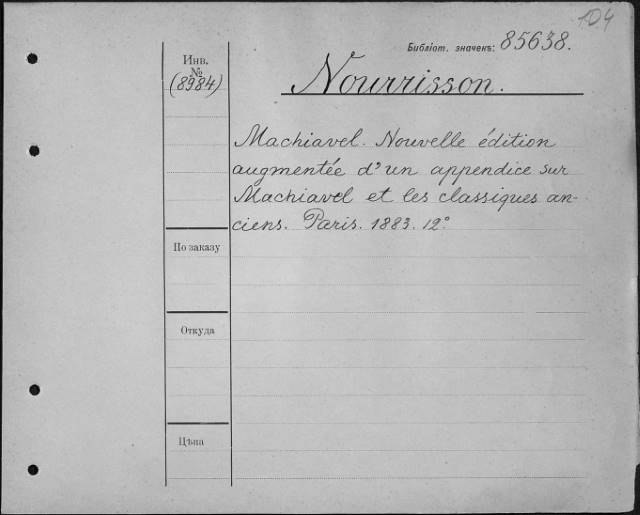 104
Библіот. значекъ: 85638.
Инв.
№
(8984)
Nourrisson.
Machiavel. Nouvelle édition
augmentée d'un appendice sur
Machiavel et les classiques an-
ciens. Paris. 1883. 12°
По заказу
Откуда
Цѣна